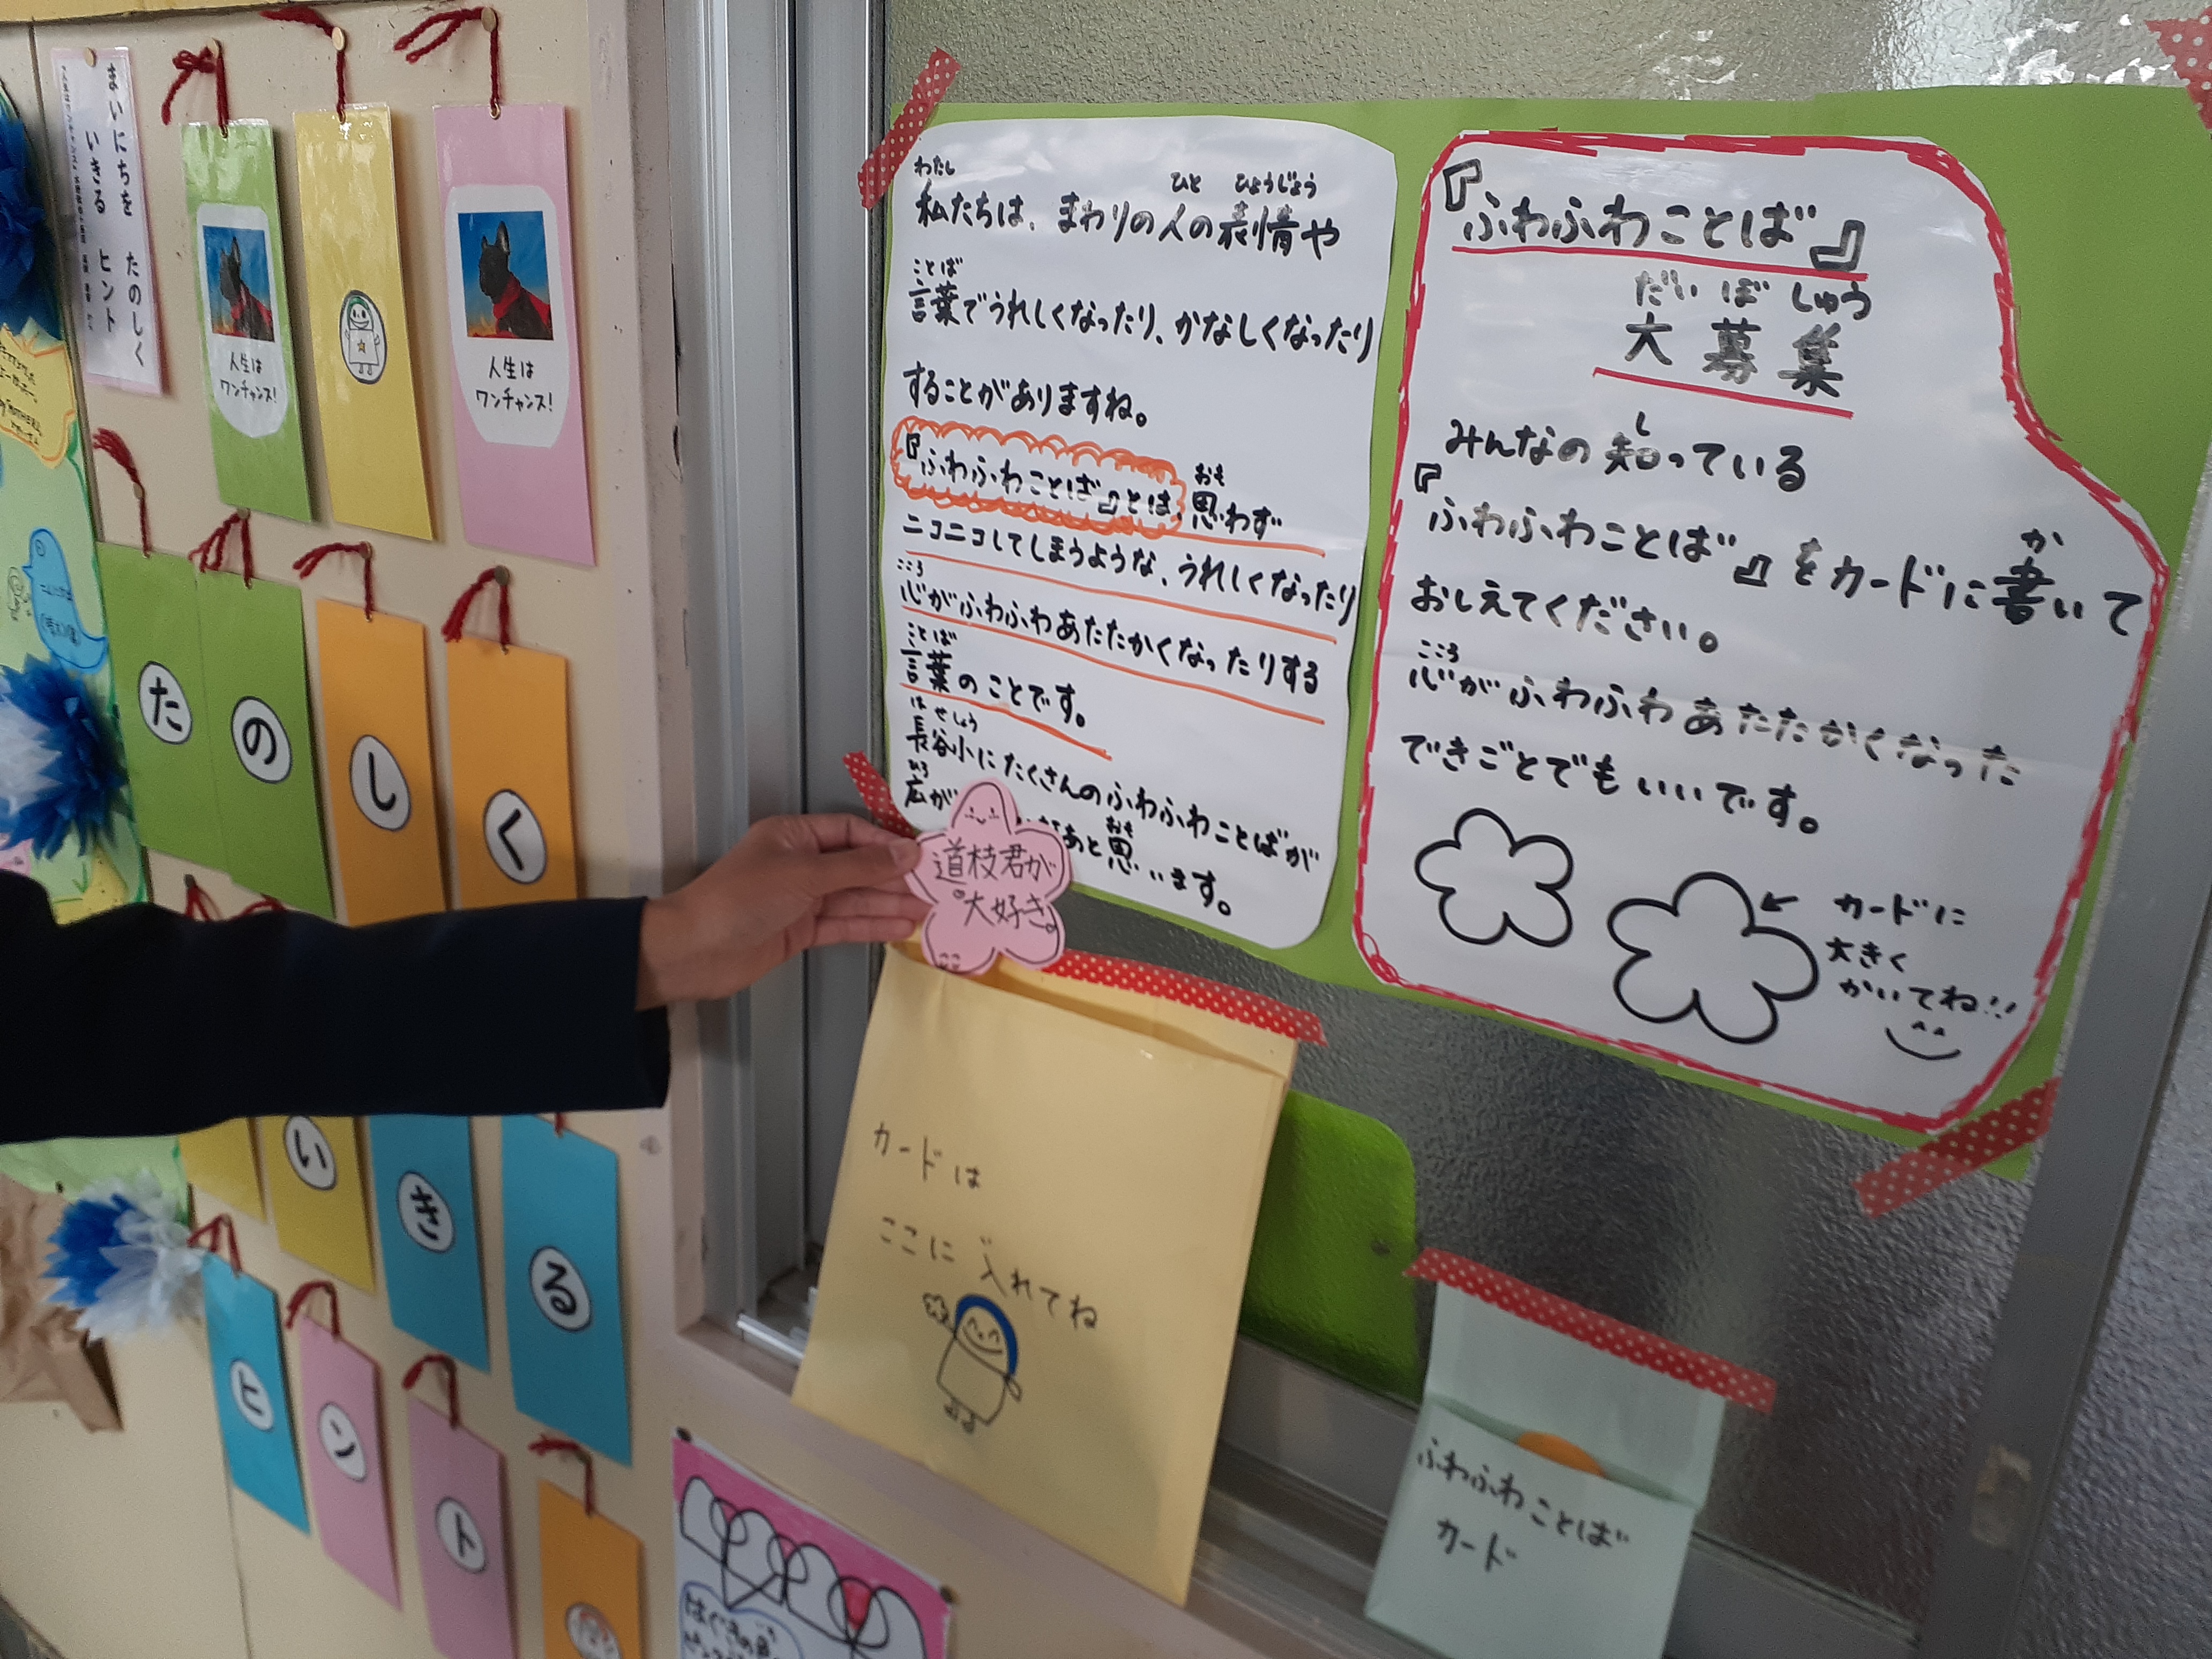 まいにちを たのしく
いきる ヒント
人生は
ワンチャンス!
人生は
ワンチャンス!
たのしく
いきる
ヒント
わたし ひと ひょうじょう
私たちは、まわりの人の表情や
ことば
言葉でうれしくなったり、かなしくなったり
することがありますね。
おも
『ふわふわことば』とは、思わず
ニコニコしてしまうような、うれしくなったり
こころ
心がふわふわあたたかくなったりする
ことば
言葉のことです。
は せしょう
長谷小にたくさんのふわふわことばが
ひろ
広が
おも
あと思います。
道枝君が
大好き。
『ふわふわことば』
だいぼしゅう
大募集
し
みんなの知っている
か
『ふわふわことば』をカードに書いて
おしえてください。
こころ
心がふわふわあたたかくなった
できごとでもいいです。
カードに
大きく
かいてね!!
カードは
ここに入れてね
ふわふわことば
カード